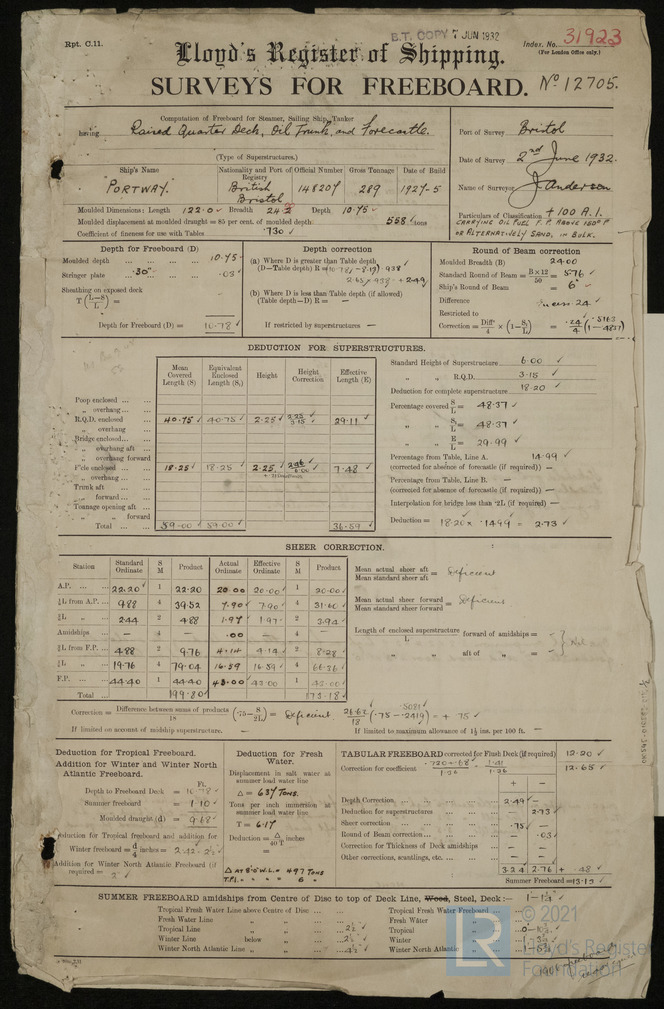 B.T. COPY 7 JUN 1932
Rpt. C.11.
Index. No. 31923
(For London Office only.)
Lloyd's Register of Shipping.
SURVEYS FOR FREEBOARD. No 12705.
Computation of Freeboard for Steamer, Sailing Ship, Tanker
having Raised Quarter Deck, Oil Trunk, and Forecastle.
(Type of Superstructures.)
Port of Survey Bristol
Date of Survey 2nd June 1932.
Name of Surveyor J. Anderson
Particulars of Classification +100 A.1.
CARRYING OIL FUEL F.P. ABOVE 150°F
OR ALTERNATIVELY SAND, IN BULK.
Ship's Name Nationality and Port of Registry Official Number Gross Tonnage Date of Build
PORTWAY. British Bristol 148207 289 1927-5
Moulded Dimensions: Length 122.0 Breadth 24.2 Depth 10.75
Moulded displacement at moulded draught = 85 per cent. of moulded depth 558 tons
Coefficient of fineness for use with Tables .730
Depth for Freeboard (D)
Moulded depth 10.75
Stringer plate .30" .03
Sheathing on exposed deck
T (L-S/L) =
Depth for Freeboard (D) = 10.78
Depth correction
(a) Where D is greater than Table depth
(D—Table depth) R = (10.78 - 8.13) .938
2.65 x .938 = +2.49
(b) Where D is less than Table depth (if allowed)
(Table depth—D) R = —
If restricted by superstructures —
Round of Beam correction
Moulded Breadth (B) 24.00
Standard Round of Beam = B×12/50 = 5.76
Ship's Round of Beam = 6"
Difference Excess .24
Restricted to
Correction = Diff/4 × (1-S₁/L) = .24/4 (1-.4837) .5163
DEDUCTION FOR SUPERSTRUCTURES.
Mean Covered Length (S) Equivalent Enclosed Length (S₁) Height Height Correction Effective Length (E)
Poop enclosed
„ overhang
R.Q.D. enclosed 40.75 40.75 2.25 2.25/3.15 29.11
„ overhang
Bridge enclosed
„ overhang aft
„ overhang forward
F'cle enclosed 18.25 18.25 2.25 7.48
„ overhang
Trunk aft
„ forward
Tonnage opening aft
„ „ forward
Total 59.00 59.00 36.59
Standard Height of Superstructure 6.00
„ „ R.Q.D. 3.15
Deduction for complete superstructure 18.20
Percentage covered S/L = 48.37
„ S₁/L = 48.37
„ E/L = 29.99
Percentage from Table, Line A. 14.99
(corrected for absence of forecastle (if required)) —
Percentage from Table, Line B. —
(corrected for absence of forecastle (if required)) —
Interpolation for bridge less than ·2L (if required) —
Deduction = 18.20 x .1499 = 2.73
SHEER CORRECTION.
Station Standard Ordinate S M Product Actual Ordinate Effective Ordinate S M Product
A.P. 22.20 1 22.20 20.00 20.00 1 20.00
⅙L from A.P. 9.88 4 39.52 7.90 7.90 4 31.60
⅓L „ 2.44 2 4.88 1.97 1.97 2 3.94
Amidships — 4 — .00 — 4 —
⅓L from F.P. 4.88 2 9.76 4.14 4.14 2 8.28
⅙L „ 19.76 4 79.04 16.59 16.59 4 66.36
F.P. 44.40 1 44.40 43.00 43.00 1 43.00
Total 199.80 173.18
Mean actual sheer aft / Mean standard sheer aft = Deficient
Mean actual sheer forward / Mean standard sheer forward = Deficient
Length of enclosed superstructure / L forward of amidships = —
„ „ aft of „ = —
Correction = Difference between sums of products/18 (·75 - S/2L) = Deficient 26.62/18 (.75 - .2419) .5081 = + .75
If limited on account of midship superstructure. —
If limited to maximum allowance of 1½ ins. per 100 ft. —
Deduction for Tropical Freeboard.
Addition for Winter and Winter North Atlantic Freeboard.
Ft.
Depth to Freeboard Deck = 10.78
Summer freeboard = 1.10
Moulded draught (d) = 9.68
Deduction for Tropical freeboard and addition for
Winter freeboard = d/4 inches = 2.42 - 2½
Addition for Winter North Atlantic Freeboard (if required) = 2"
Deduction for Fresh Water.
Displacement in salt water at summer load water line
Δ = 637 TONS.
Tons per inch immersion at summer load water line
T = 6.17
Deduction = Δ/40 T inches
=
Δ AT 8'0" W.L. = 497 TONS
T.P.I. „ „ „ 6 „
TABULAR FREEBOARD corrected for Flush Deck (if required) 12.20
Correction for coefficient .730+.68/1.36 = 1.41/1.36 12.65
+ −
Depth Correction 2.49 —
Deduction for superstructures — 2.73
Sheer correction .75 —
Round of Beam correction — .03
Correction for Thickness of Deck amidships — —
Other corrections, scantlings, etc. — —
3.24 2.76 + .48
Summer Freeboard = 13.13
SUMMER FREEBOARD amidships from Centre of Disc to top of Deck Line, Wood, Steel, Deck:— 1 - 1¼
Tropical Fresh Water Line above Centre of Disc
Fresh Water Line „ „
Tropical Line „ „ 2½
Winter Line below „ 2½
Winter North Atlantic Line „ „ 4½
Tropical Fresh Water Freeboard
Fresh Water „
Tropical „ 0 - 10¾
Winter „ 1 - 3¾
Winter North Atlantic „ 1 - 5¾
© 2021
LR Lloyd's Register
Foundation